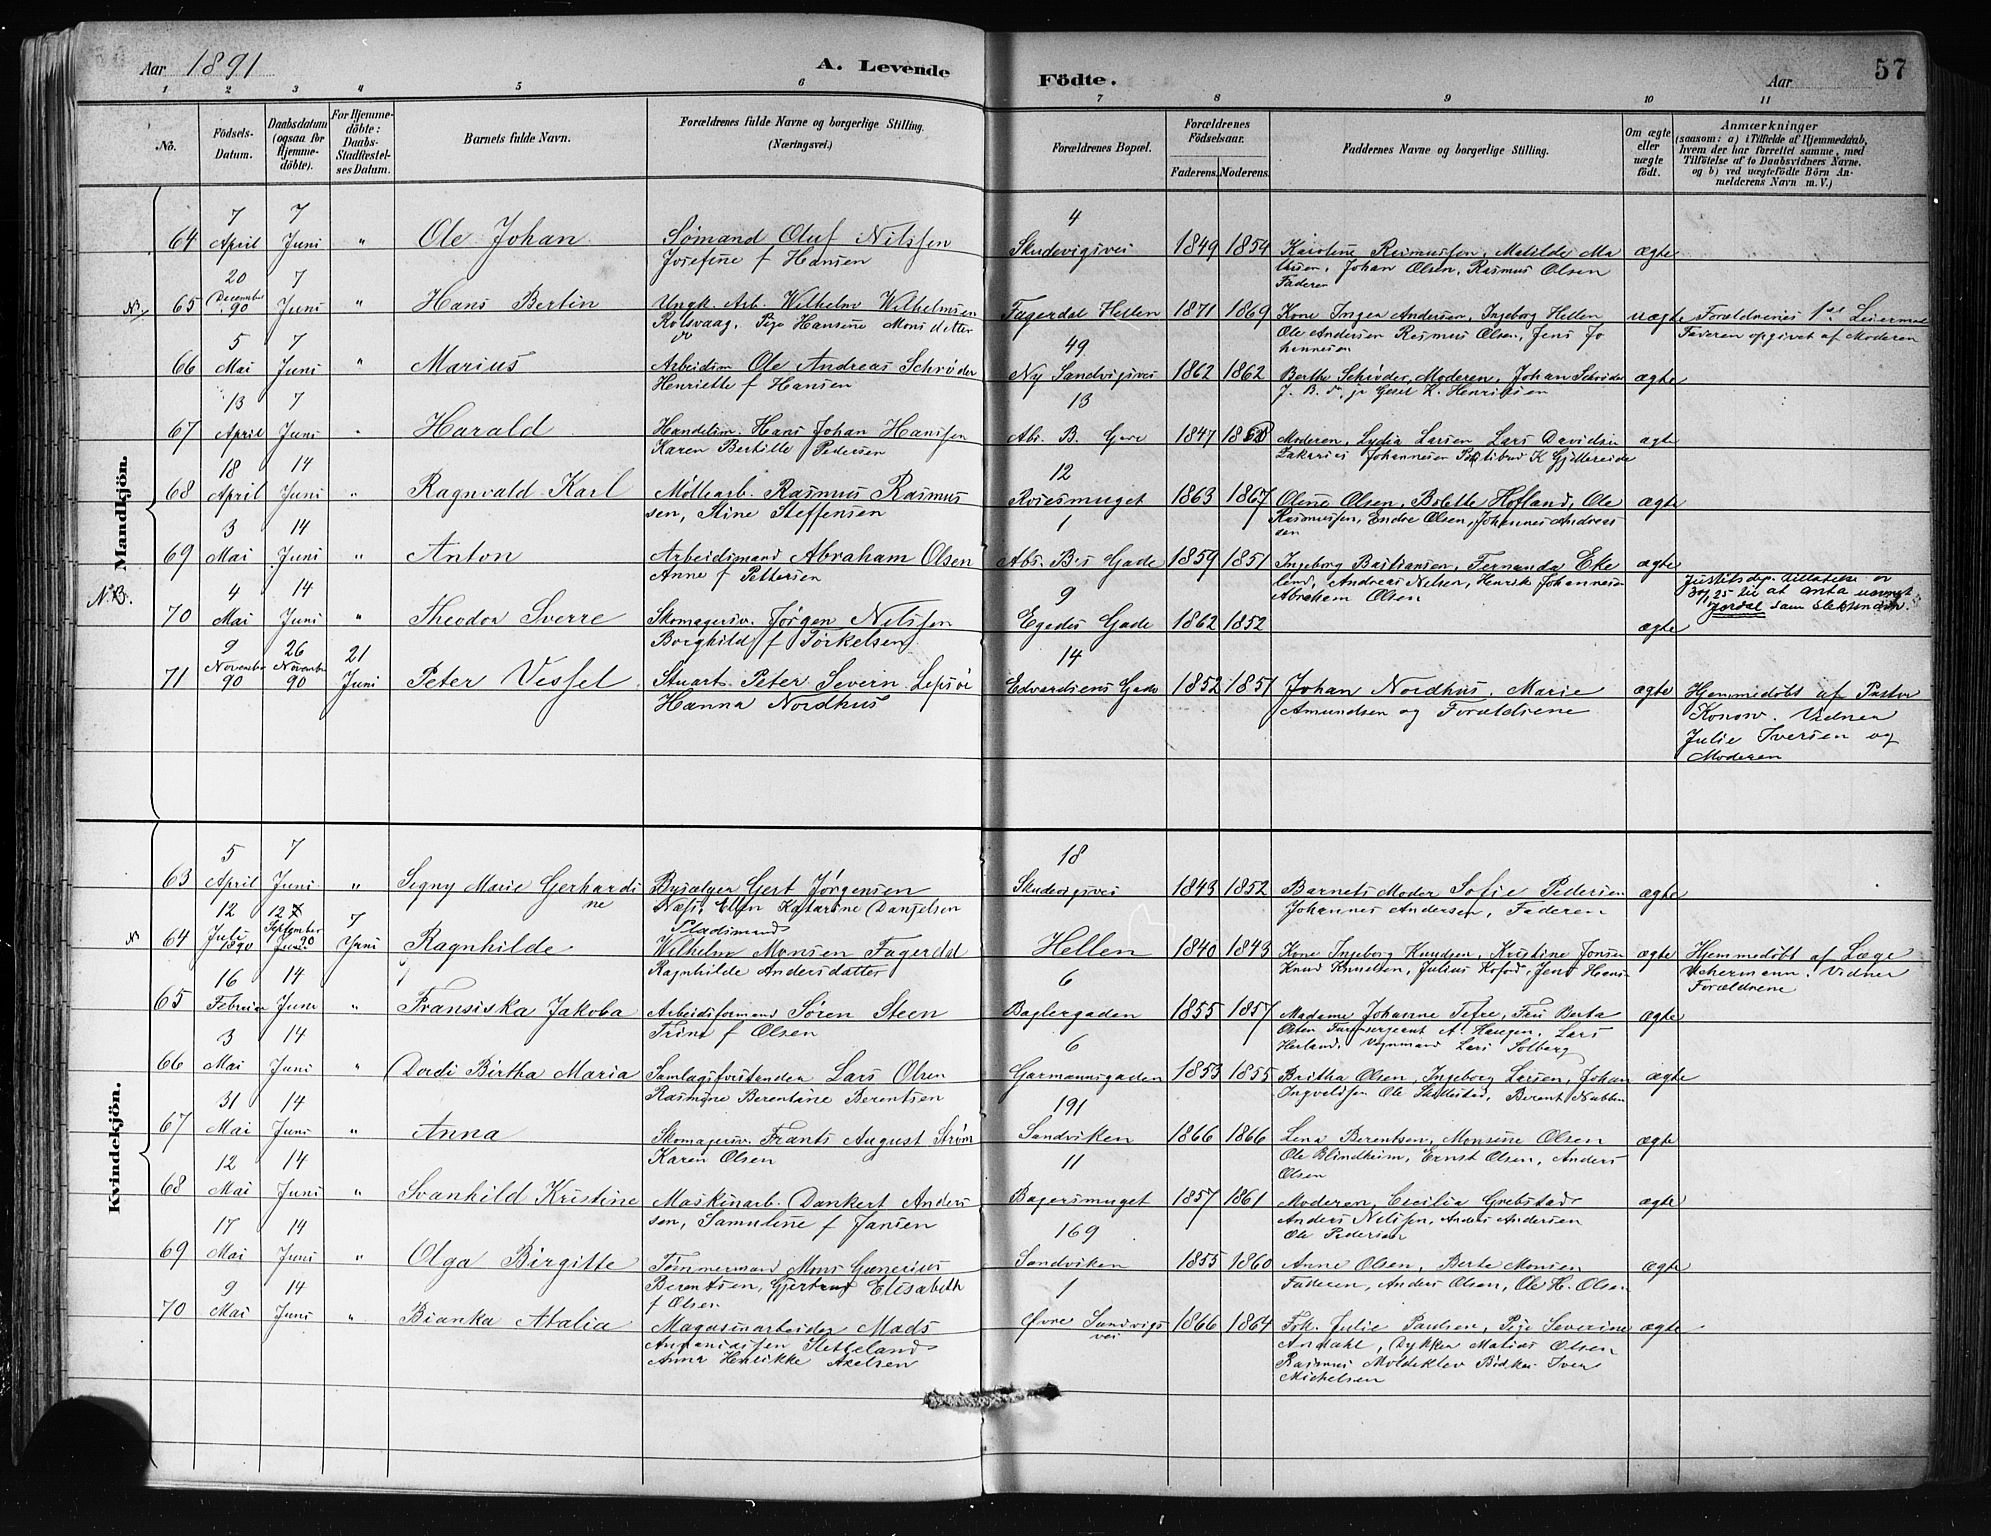 Aar 1891 A. Levende Födte. Aar 57
1 2 3 4 5 6 7 8 9 10 11
No. Födsels-Datum. Daabsdatum (ogsaa for Hjemme-döbte). For Hjemme-döbte: Daabs-Stadfæstel-ses Datum. Barnets fulde Navn. Forældrenes fulde Navne og borgerlige Stilling. (Næringsvei.) Forældrenes Bopæl. Forældrenes Födselsaar. Faderens. Moderens. Faddernes Navne og borgerlige Stilling. Om ægte eller uægte födt. Anmærkninger (saasom: a) i Tilfælde af Hjemmedaab, hvem der har forrettet samme, med Tilföielse af to Daabsvidners Navne, og b) ved uægtefödte Börn Anmelderens Navn m. V.)
Mandkjön.
7 7 4
64 April Juni " Ole Johan Sømand Oluf Nilssen Skudevigsvei 1849 1854 Karoline Rasmussen, Matilde Ma ægte
Josefine f Hansen thisen, Johan Olsen, Rasmus Olsen
20 7 Faderen
N. 65 December 90 Juni " Hans Bertin Ungk. Arb. Wilhelm Wilhelmsen Fagerdal Hellen 1871 1869 Kone Inger Andersen, Ingeborg Hellen uægte Forældrenes 1ste Leiermaal
Rolsvaag, Pige Hansine Monsdatter Ole Andersen Rasmus Olsen, Jens Jo Faderen opgivet af Moderen
5 7 49 hannesen
66 Mai Juni " Marius Arbeidsm Ole Andreas Schrøder Ny Sandvigsvei 1862 1862 Berthe Schrøder, Moderen, Johan Schrøder ægte
Henriette f Hansen K. Henriksen
13 7 13
67 April Juni Harald Handelsm. Hans Johan Hanssen Abs. B. Gade 1847 Moderen, Lydia Larsen Lars Davidsen ægte
Karen Bertille Pedersen Zakarias Johannesen K Gjellereide
18 14 12
68 April Juni " Ragnvald Karl Møllearb. Rasmus Rasmus Rosesmuget 1863 1867 Oline Olsen, Bolette Hofland, Ole ægte
sen, Stine Steffensen Rasmussen, Endre Olsen, Johannes Andreas
3 14 1 sen
69 Mai Juni " Anton Arbeidsmand Abraham Olsen Abs. B's Gade 1859 1851 Ingeborg Bastiansen, Fernanda Eke ægte
Anne f Pettersen land, Andreas Nelsen, Henrik Johannesen
N.B. 4 14 9 Abraham Olsen Justitsdep. tillatelse av 30/1 25 til at anta navnet
70 Mai Juni " Theodor Sverre Skomagersv. Jørgen Nilssen Egedes Gade 1862 1852 ægte som slektsnavn.
Borghild f Torkelsen
9 26 21 14
71 November 90 November 90 Juni Peter Vessel Stuart Peter Severin Lepsøe Edvardsens Gade 1852 1857 Johan Nordhus, Marie ægte Hjemmedøbt af Pastor
Hanna Nordhus Amundsen og Forældrene Konow. Vidner
Julie Iversen og
Moderen
Kvindekjön.
5 7 18
63 April Juni " Signy Marie Gerhardi Bysælger Gert Jørgensen Skudevigsvei 1843 1852 Barnets Moder Sofie Pedersen ægte
ne Næss, Ellen Katarine Danielsen Johannes Andersen, Faderen
12 12 7 Pladsmand
N 64 Juli 1890 September 90 Juni Ragnhilde Wilhelm Monsen Fagerdal Hellen 1840 1843 Kone Ingeborg Knudsen, Kristine Jonsen ægte Hjemmedøbt af Læge
Ragnhilde Andersdatter Knud Knudsen, Julius Kofod, Jens Hansen Schermann, Vidner
16 14 6 Forældrene
65 Februar Juni " Fransiska Jakoba Arbeidsformand Søren Steen Baglergaden 1855 1857 Madame Johanne Tefre, Fru Berta ægte
Trine f Olsen Olsen A. Haugen, Lars
3 14 6 Herland, Vognmand Lars Solberg
66 Mai Juni " Dordi Birtha Maria Samlagsforstander Lars Olsen Garmannsgaden 1853 1855 Britha Olsen, Ingeborg Larsen, Johan ægte
Rasmine Berentine Berentsen Ingvaldsen Ole Skillestad, Berent Nubben
31 14 191
67 Mai Juni " Anna Skomagersv. Frants August Strøm Sandviken 1866 1866 Lena Berentsen, Monsine Olsen ægte
Karen Olsen Ole Blindheim, Ernst Olsen, Anders
12 14 11 Olsen
68 Mai Juni " Svanhild Kristine Maskinarb. Dankert Anders Bagersmuget 1857 1861 Moderen, Cecilia Grebstad ægte
sen, Samuline f Jansen Anders Nilssen, Anders Andersen
17 14 169 Ole Pedersen
69 Mai Juni " Olga Birgitte Tømmermand Mons Gunerius Sandviken 1855 1860 Anne Olsen, Berte Monsen ægte
Berentsen, Gjertrud Elisabeth Faderen, Anders Olsen, Ole H. Olsen
9 14 f Olsen 1
70 Mai Juni " Bianka Atalia Magasinarbeider Mads Øvre Sandvigs 1866 1864 Frk. Julie Paulsen, Pige Severine ægte
Annanissen Sletteland vei Andahl, Dykker Matias Olsen
Anna Henrikke Axelsen Rasmus Moldeklev Bødker Iver
Michelsen